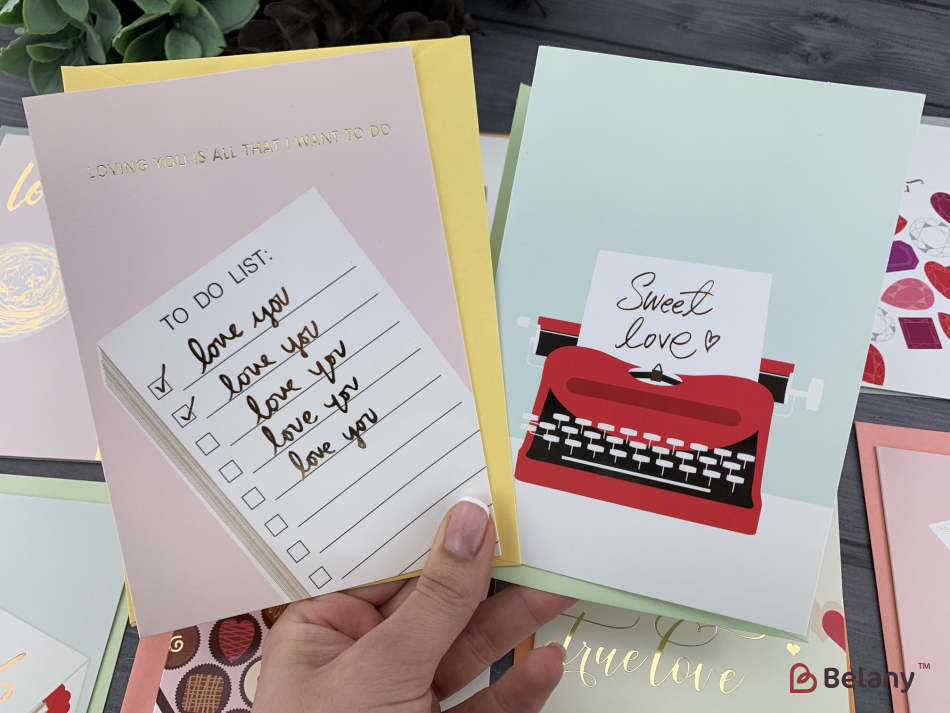 LOVING YOU IS ALL THAT I WANT TO DO
TO DO LIST:
love you
love you
love you
love you
love you
Sweet
love
true love
Belany™